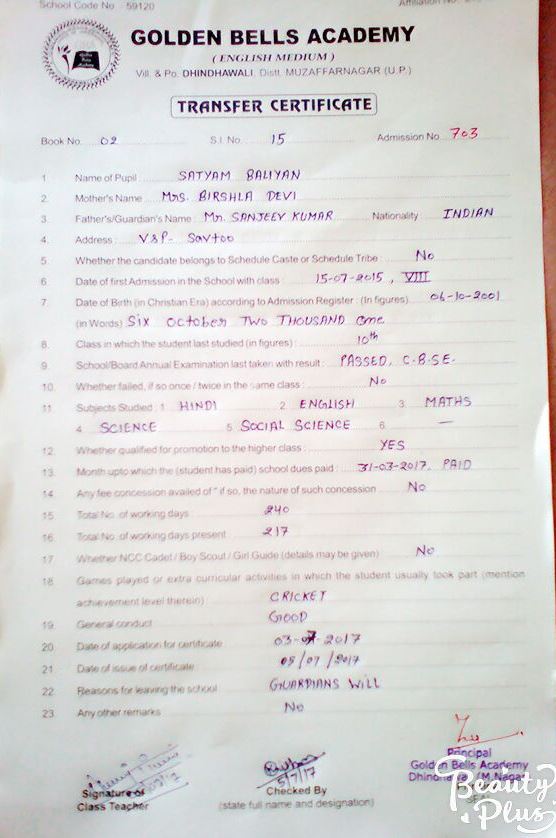 School Code No 59120
Affiliation No.
GOLDEN BELLS ACADEMY
( ENGLISH MEDIUM )
Vill. & Po. DHINDHAWALI, Distt. MUZAFFARNAGAR (U.P.)
TRANSFER CERTIFICATE
Book No. 02 S.I. No. 15 Admission No. 703
1 Name of Pupil SATYAM BALIYAN
2. Mother's Name Mrs. BIRSHLA DEVI
3 Father's/Guardian's Name : Mr. SANJEEV KUMAR Nationality INDIAN
4. Address : V&P- Savtoo
5. Whether the candidate belongs to Schedule Caste or Schedule Tribe No
6 Date of first Admission in the School with class : 15-07-2015 , VIII
7. Date of Birth (in Christian Era) according to Admission Register : (In figures) 06-10-2001
(in Words) Six October TWO THOUSAND One
8. Class in which the student last studied (in figures) : 10th
9. School/Board Annual Examination last taken with result : PASSED, C.B.S.E.
10. Whether failed, if so once / twice in the same class : No
11 Subjects Studied : 1 HINDI 2. ENGLISH 3. MATHS
4. SCIENCE 5. SOCIAL SCIENCE 6. —
12 Whether qualified for promotion to the higher class : YES
13. Month upto which the (student has paid) school dues paid : 31-03-2017. PAID
14. Any fee concession availed of " if so, the nature of such concession No
15 Total No. of working days : 240
16. Total No. of working days present 217
17 Whether NCC Cadet / Boy Scout / Girl Guide (details may be given) No
18 Games played or extra curricular activities in which the student usually took part (mention
achievement level therein) CRICKET
19. General conduct GOOD
20 Date of application for certificate 03-07-2017
21. Date of issue of certificate 05/07/2017
22 Reasons for leaving the school GUARDIANS WILL
23 Any other remarks No
5/7/17
Signature of
Class Teacher
Checked By
(state full name and designation)
Principal
Golden Bells Academy
M.Nagar
SEAL
Beauty
Plus